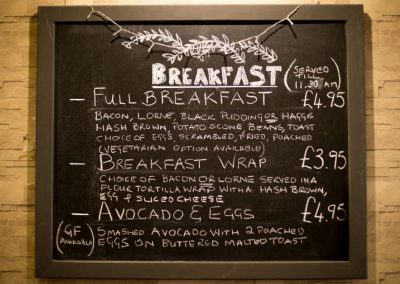 BREAKFAST (SERVED TILL 11.30 AM)
— FULL BREAKFAST £4.95
BACON, LORNE, BLACK PUDDING OR HAGGIS
HASH BROWN, POTATO SCONE, BEANS, TOAST
CHOICE OF EGGS, SCRAMBLED, FRIED, POACHED
(VEGETARIAN OPTION AVAILABLE)
— BREAKFAST WRAP £3.95
CHOICE OF BACON OR LORNE SERVED IN A
FLOUR TORTILLA WRAP WITH A HASH BROWN,
EGG & SLICED CHEESE
— AVOCADO & EGGS £4.95
(GF AVAILABLE)
SMASHED AVOCADO WITH 2 POACHED
EGGS ON BUTTERED MALTED TOAST